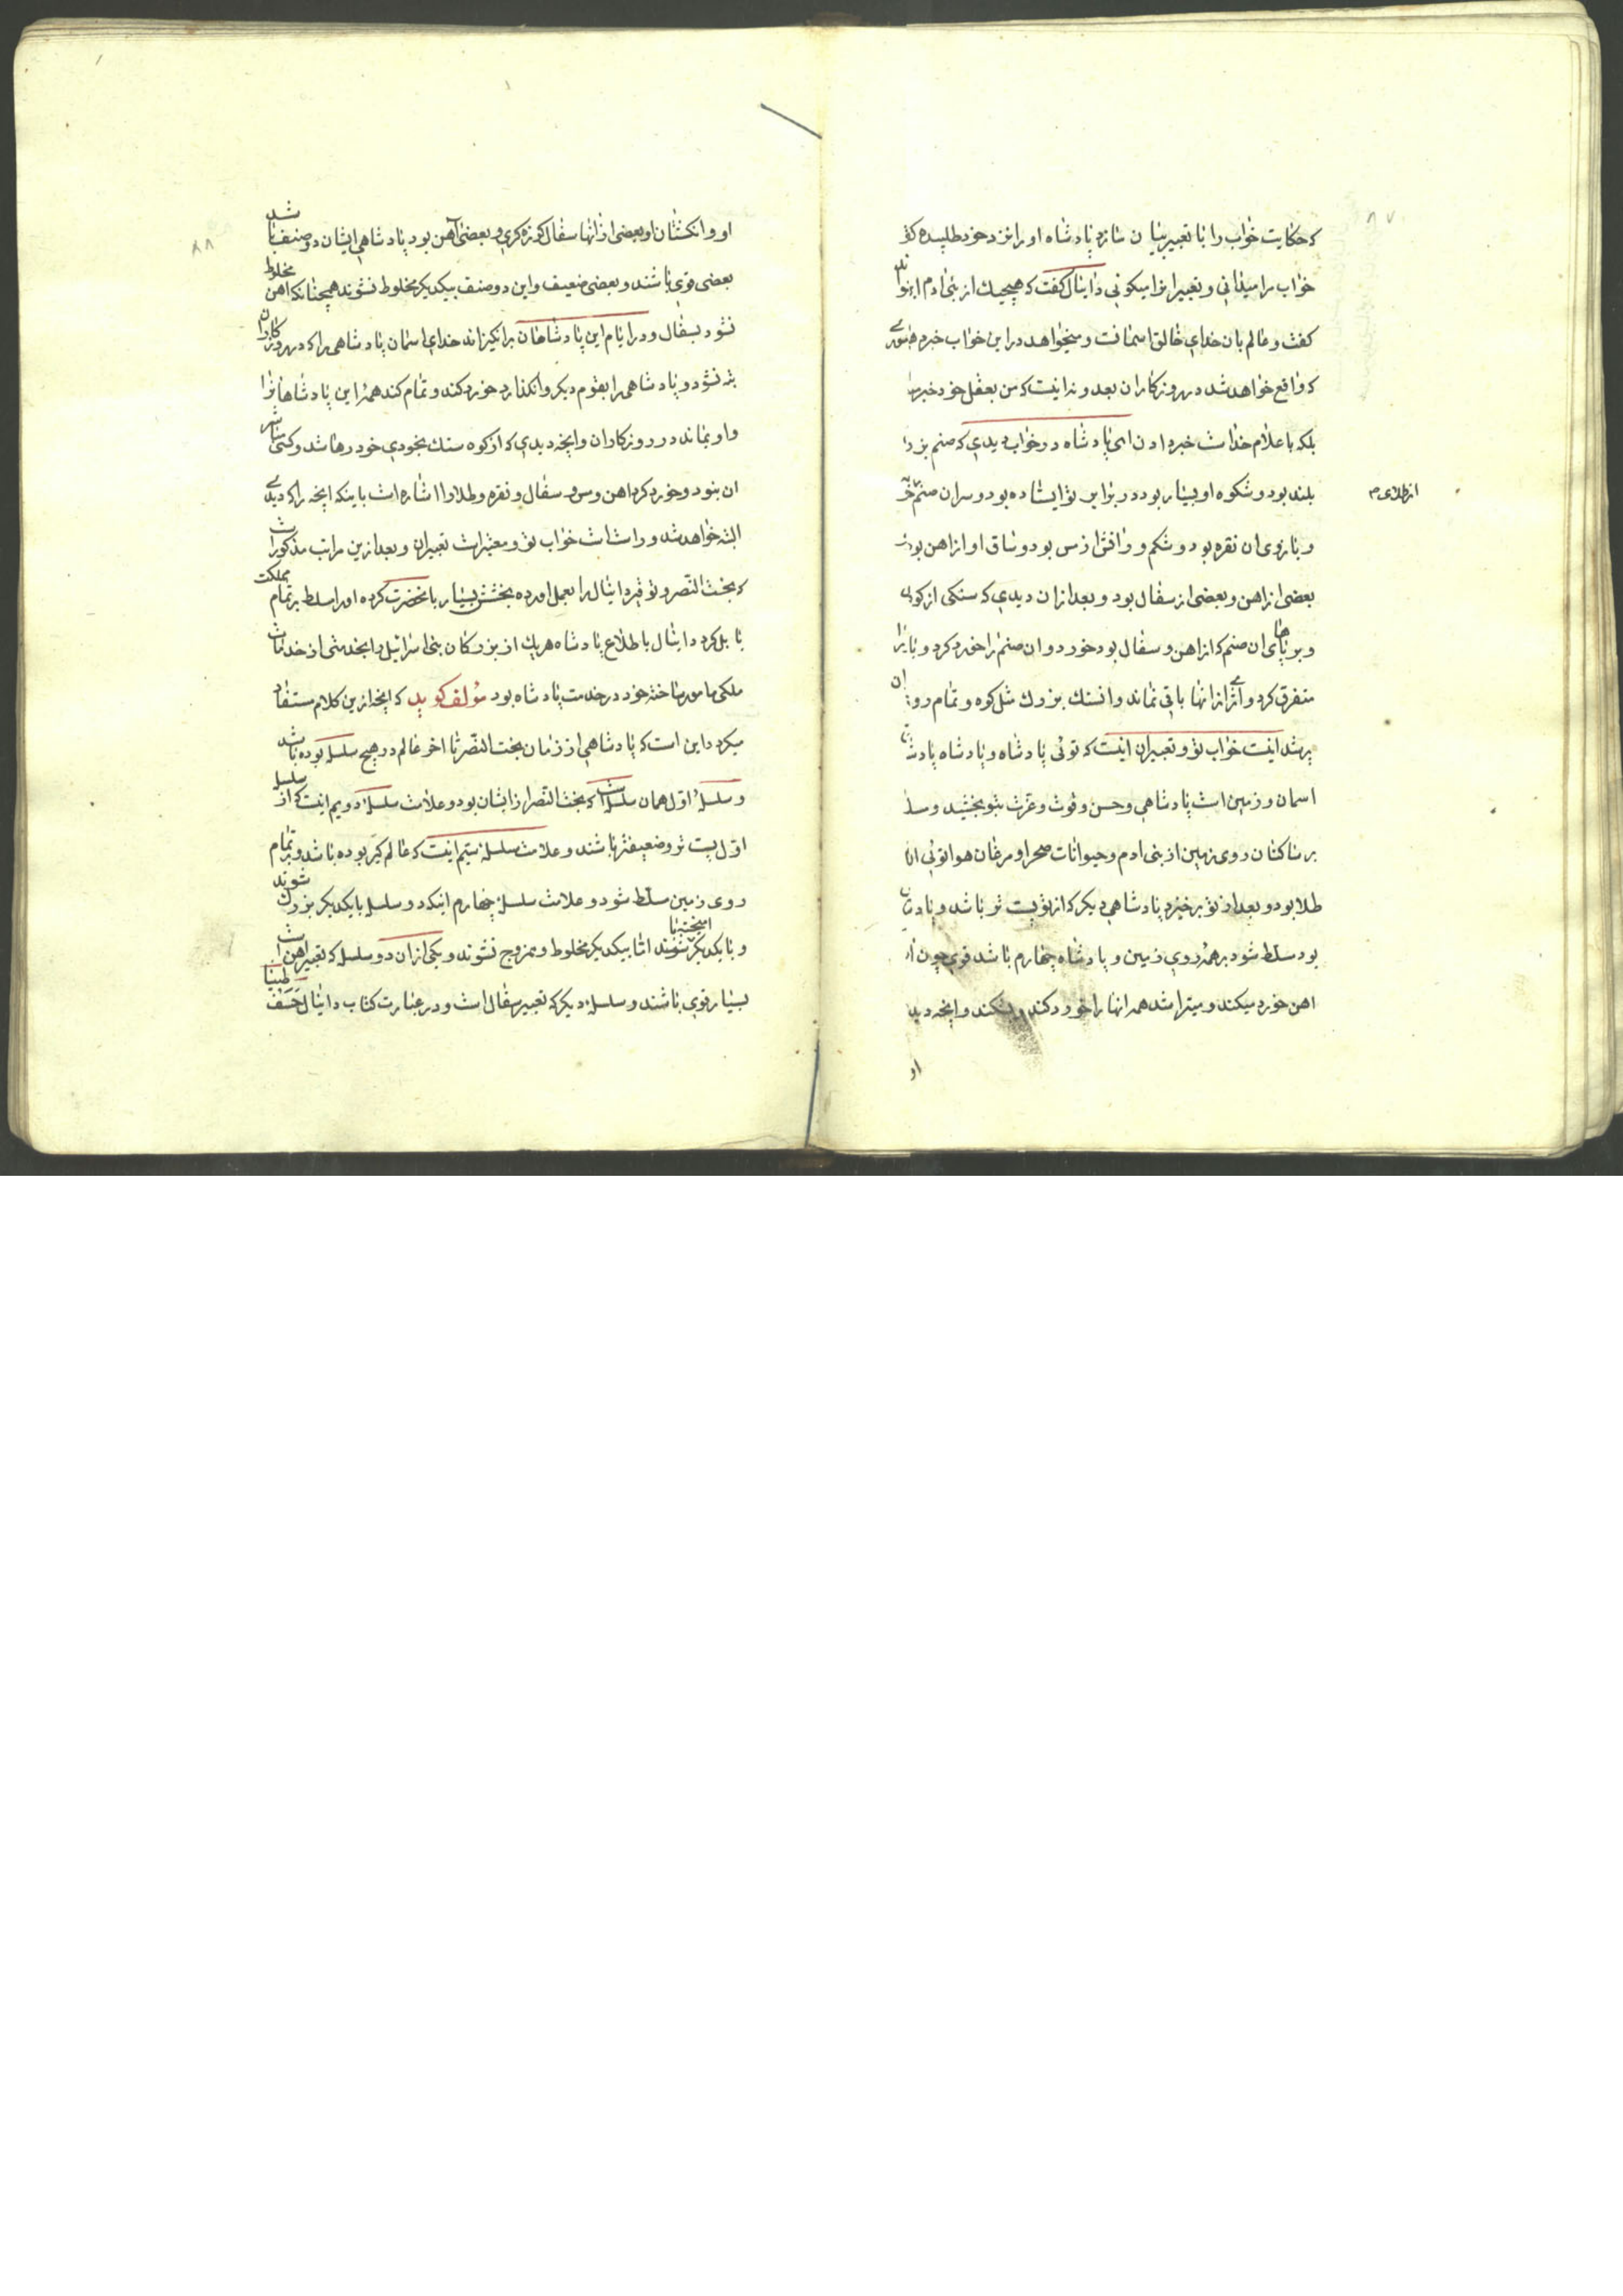 ۸۷
که حکایت خواب را با تعبیر بیان سازد پادشاه او را نزد خود طلبیده کفت
خواب مرا میدانی و تعبیر انرا میکوئی دانیال کفت که هیچیک از بنی ادم این نتواند
کفت و عالم بان خدای خالق اسمانست و میخواهد در این خواب خبر دهد
که واقع خواهد شد در روزکاران بعد و نه اینست که من بعقل خود خبر
بلکه باعلام خداست خبر دادن ای پادشاه در خواب دیدی که صنم بزرك
بلند بود و شکوه او بسیار بود در برابر تو ایستاده بود و سر ان صنم
از طلای م
و بازوی ان نقره بود و شکم و رانش از مس بود و ساق او از اهن بود
بعضی از اهن و بعضی از سفال بود و بعد از ان دیدی که سنکی از کوهی
و بر پاهای ان صنم که از اهن و سفال بود خورد و ان صنم را خورد کرد و
متفرق کرد و اثری از انها باقی نماند و ان سنك بزرك مثل کوه و تمام روی
پر شد اینست خواب تو و تعبیر ان اینست که توئی پادشاه و پادشاه پادشاهان
اسمان و زمین است پادشاهی و حسن و قوت و عزت بتو بخشید و
بر ساکنان روی زمین از بنی ادم و حیوانات صحرا و مرغان هوا توئی ان
طلا بود و بعد از تو برخیزد پادشاهی دیکر که از تو پست تر باشد و
بود مسلط شود بر همه روی زمین و پادشاه چهارم باشد قوی چون
اهن خورد میکند و میتراشد همه انها را خورد کند و بشکند و انچه دیدی
او
۸۸
او و انکشتان او بعضی از انها سفال کوزه کری و بعضی آهن بود پادشاهی ایشان دو صنف باشد
بعضی قوی باشند و بعضی ضعیف و این دو صنف بیکدیکر مخلوط نشوند همچنانکه اهن مخلوط
نشود بسفال و در ایام این پادشاهان برانکیزاند خدای اسمان پادشاهی را که در روزکاران
نشود و پادشاهی را بقوم دیکر وانکذارد خورد کند و تمام کند همهٔ این پادشاهانرا
و او بماند در روزکاران و انچه دیدی که از کوه سنك بخودی خود رها شد و کسی مباشر
ان بنود و خورد کرد اهن و مس و سفال و نقره و طلا را اشاره است باینکه انچه را که دیدی
البته خواهد شد و راست است خواب تو و معتبر است تعبیر ان و بعد ازین مراتب مذکور است
که بخت النصر و توقیر دانیال را بعمل اورده بخشش بسیار بانحضرت کرده او را مسلط بر تمام مملکت
بابل کرد دانیال باطلاع پادشاه هریك از بزرکان بنی اسرائیل را بخدمتی از خدمات
ملکی مامور ساخته خود در خدمت پادشاه بود مؤلف کوید که انچه ازین کلام مستفاد
میکردد این است که پادشاهی از زمان بخت النصر تا اخر عالم در پنج سلسله بوده باشد
و سلسلهٔ اول همان سلسله است که بخت النصر از ایشان بود و علامت سلسلهٔ دویم اینست که از سلسله
اول پست تر و ضعیفتر باشند و علامت سلسلهٔ سیم اینست که عالم کیر بوده باشد و بر تمام
روی زمین مسلط شود و علامت سلسلهٔ چهارم اینکه دو سلسله با یکدیکر بزرك شوند
و با یکدیکر امیخته باشند اما بیکدیکر مخلوط و ممزوج نشوند و یکی از ان دو سلسله که تعبیر اهن است
بسیار قوی باشند و سلسلهٔ دیکر که تعبیر سفال است و در عبارت کتاب دانیال